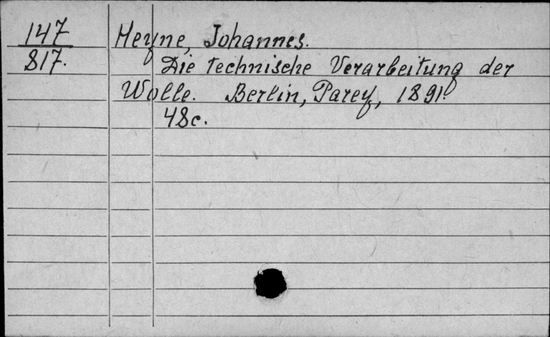 147 Heyne, Johannes.
817. Die technische Verarbeitung der
Wolle. Berlin, Parey, 1891.
48c.